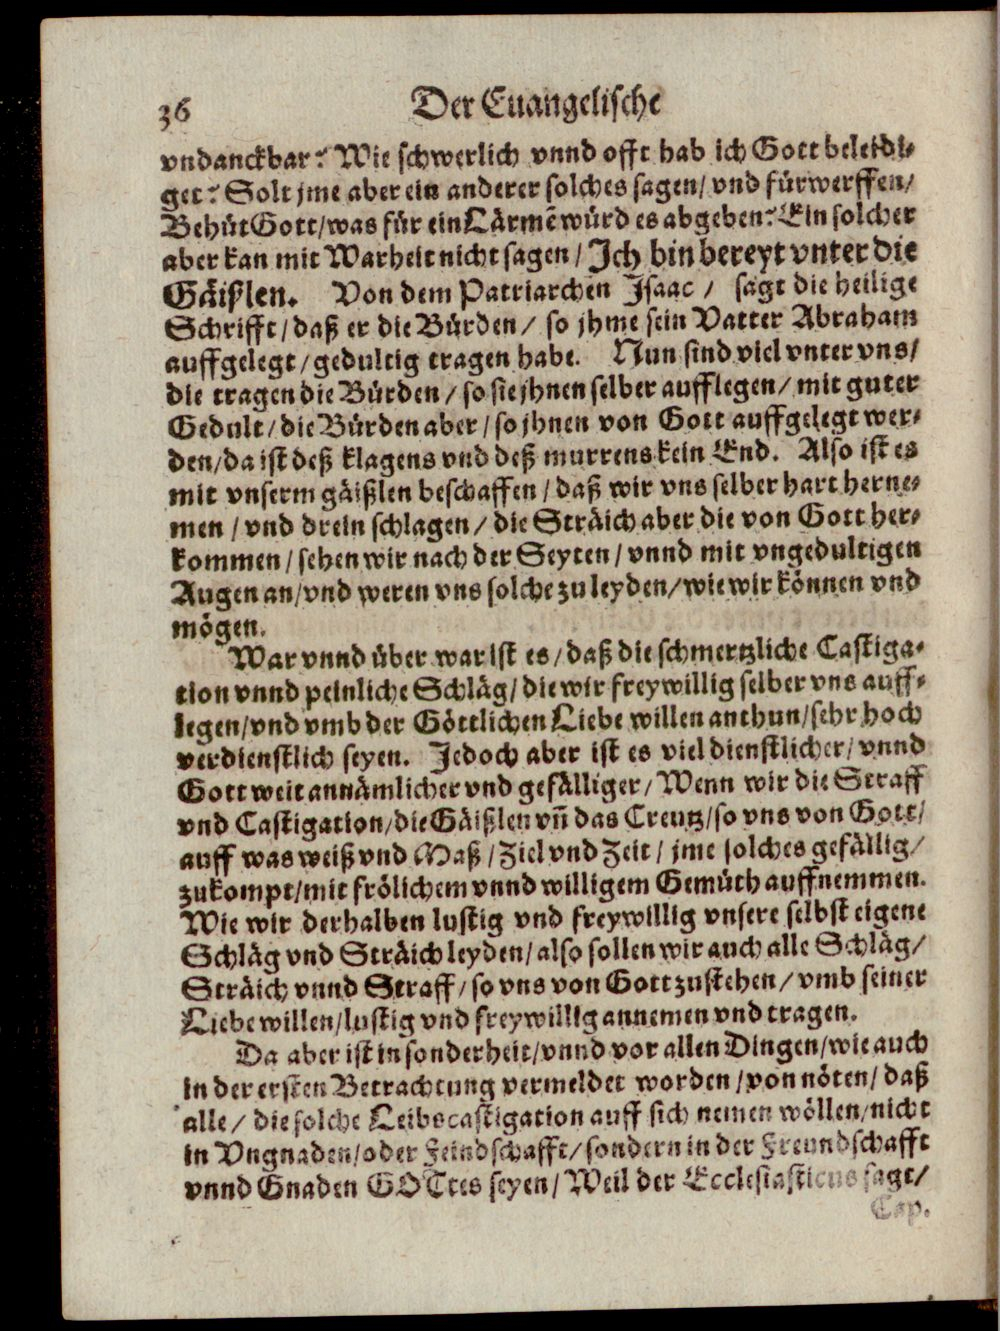 36 Der Euangelische
vndanckbar? Wie schwerlich vnnd offt hab ich Gott beleidi-
get? Solt jme aber ein anderer solches sagen/ vnd fürwerffen/
Behüt Gott/ was für ein Lärmē würd es abgeben? Ein solcher
aber kan mit Warheit nicht sagen/ Ich bin bereyt vnter die
Gäißlen. Von dem Patriarchen Isaac/ sagt die heilige
Schrifft/ daß er die Bürden/ so jhme sein Vatter Abraham
auffgelegt/ gedultig tragen habe. Nun sind viel vnter vns/
die tragen die Bürden/ so sie jhnen selber aufflegen/ mit guter
Gedult/ die Bürden aber/ so jhnen von Gott auffgelegt wer-
den/ da ist deß klagens vnd deß murrens kein End. Also ist es
mit vnserm gäißlen beschaffen/ daß wir vns selber hart herne-
men/ vnd drein schlagen/ die Sträich aber die von Gott her-
kommen/ sehen wir nach der Seyten/ vnnd mit vngedultigen
Augen an/ vnd weren vns solche zu leyden/ wie wir können vnd
mögen.
War vnnd über war ist es/ daß die schmertzliche Castiga-
tion vnnd peinliche Schläg/ die wir freywillig selber vns auff-
legen/ vnd vmb der Göttlichen Liebe willen anthun/ sehr hoch
verdienstlich seyen. Jedoch aber ist es viel dienstlicher/ vnnd
Gott weit annämlicher vnd gefälliger/ Wenn wir die Straff
vnd Castigation/ die Gäißlen vn̄ das Creutz/ so vns von Gott/
auff was weiß vnd Maß/ Ziel vnd Zeit/ jme solches gefällig/
zukompt/ mit frölichem vnnd willigem Gemüth auffnemmen.
Wie wir derhalben lustig vnd freywillig vnsere selbst eigene
Schläg vnd Sträich leyden/ also sollen wir auch alle Schläg/
Sträich vnnd Straff/ so vns von Gott zustehen/ vmb seiner
Liebe willen/ lustig vnd freywillig annemen vnd tragen.
Da aber ist in sonderheit/ vnnd vor allen Dingen/ wie auch
in der ersten Betrachtung vermeldet worden/ von nöten/ daß
alle/ die solche Leibscastigation auff sich nemen wöllen/ nicht
in Vngnaden/ oder Feindschafft/ sondern in der Freundschafft
vnnd Gnaden GOTtes seyen/ Weil der Ecclesiasticus sagt/
Cap.